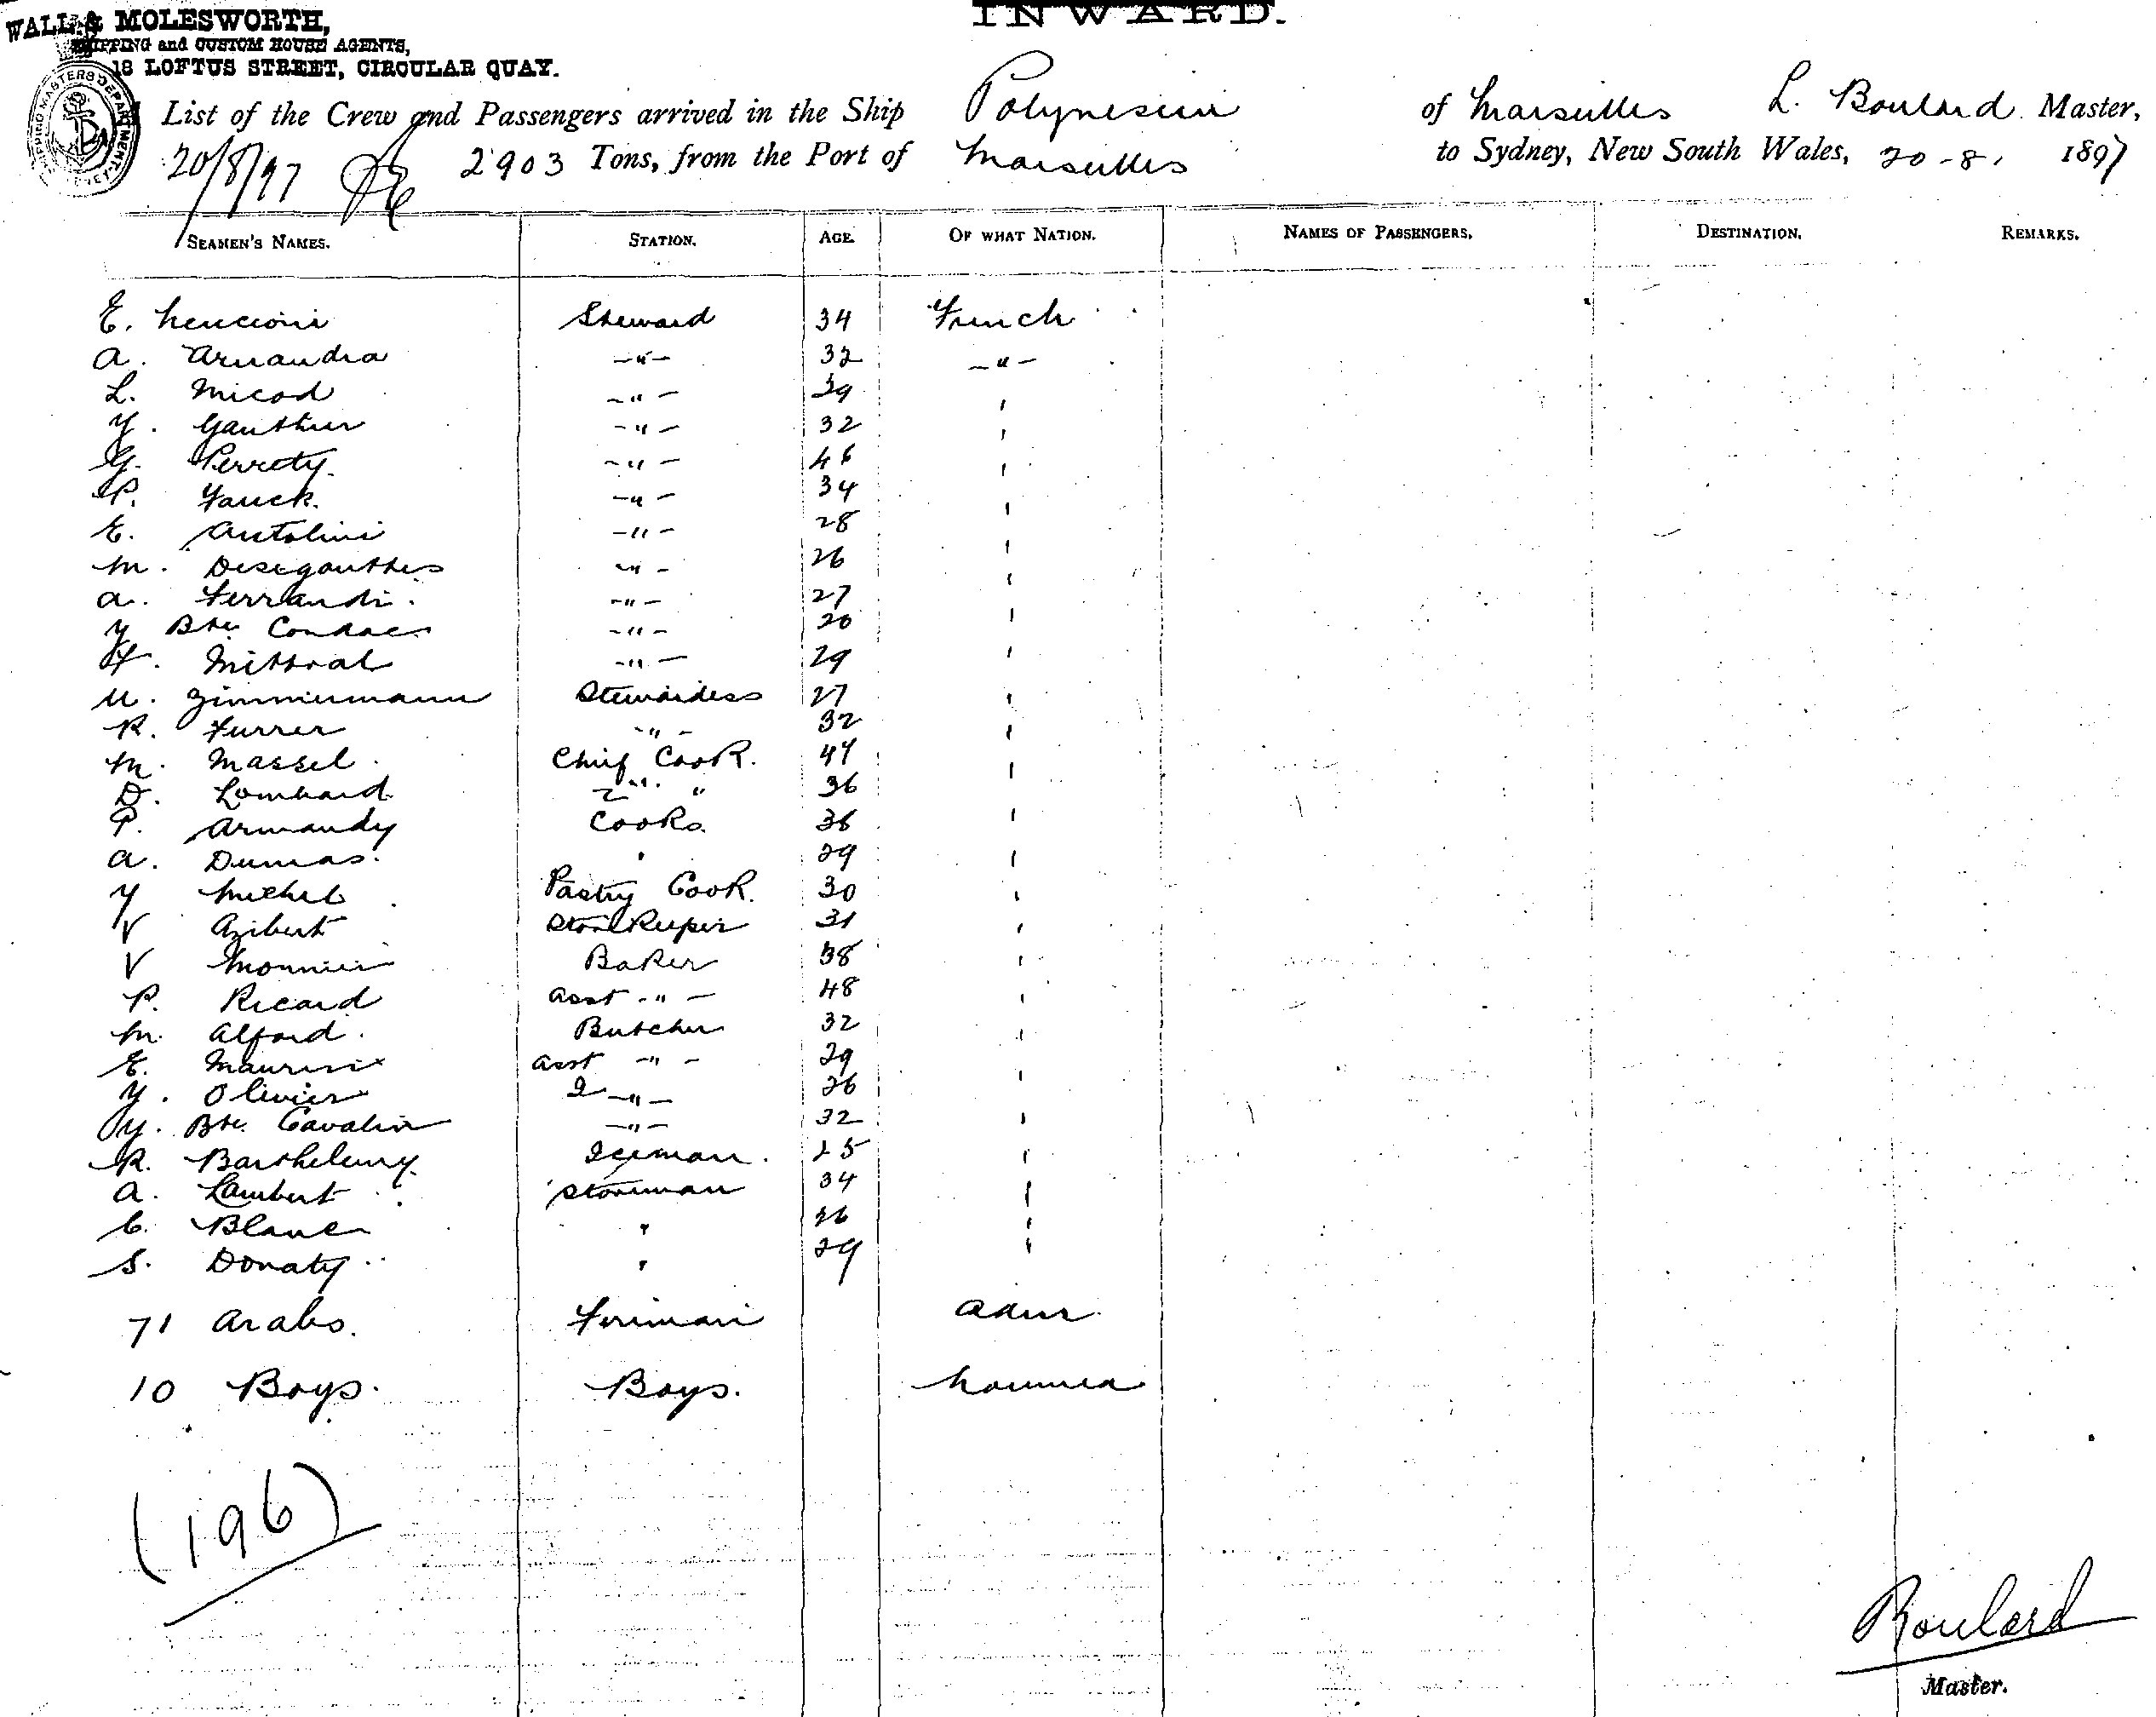 INWARD.
WALL & MOLESWORTH,
SHIPPING and CUSTOM HOUSE AGENTS,
18 LOFTUS STREET, CIRCULAR QUAY.
SHIPPING MASTERS DEPARTMENT
List of the Crew and Passengers arrived in the Ship Polynesien of Marseilles L. Boulard Master,
20/8/97 2903 Tons, from the Port of Marseilles to Sydney, New South Wales, 20-8. 1897
SEAMEN'S NAMES. STATION. AGE. OF WHAT NATION. NAMES OF PASSENGERS. DESTINATION. REMARKS.
E. Steward 34 French
A. Arnandra -"- 32 -"-
L. Micod -"- 29 "
Y. Gauthier -"- 32 "
G. Perrety. -"- 46 "
P. Fauck. -"- 34 "
E. Antolini -"- 28 "
M. Deseganthes -"- 26 "
A. Ferrandi. -"- 27 "
Y Bte -"- 20 "
F. Mistral -"- 29 "
M. Zimmermann Stewardess 27 "
R. Furrer -"- 32 "
M. Massel Chief Cook. 47 "
D. Lombard 2nd " 36 "
P. Armandy Cooks. 36 "
A. Dumas. " 29 "
Y Michel Pastry Cook. 30 "
V Azibert Storekeeper 31 "
V Monnier Baker 38 "
P. Ricard Asst -"- 48 "
M. Alford. Butcher 32 "
E. Asst -"- 29 "
Y. Olivier 2 -"- 26 "
Y. Bte. Cavalier -"- 32 "
R. Barthelemy. Iceman. 25 "
A. Lambert Storeman 34 "
C. Blanc " 26 "
S. Donaty " 29 "
71 Arabs. Fireman Aden
10 Boys. Boys. Noumea
(196)
Boulard
Master.